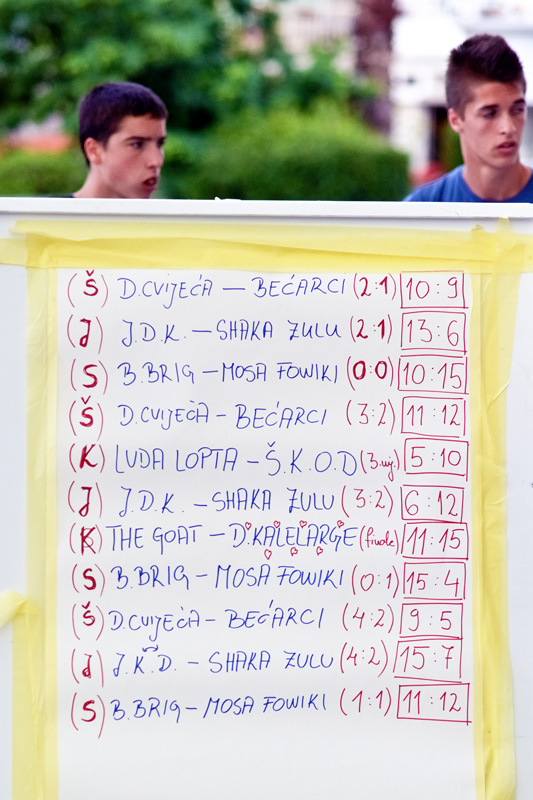 (Š) D.CVIJEĆA – BEĆARCI (2:1) 10:9
(J) J.D.K. – SHAKA ZULU (2:1) 13:6
(S) B.BRIG – MOSA FOWIKI (0:0) 10:15
(Š) D.CVIJEĆA – BEĆARCI (3:2) 11:12
(K) LUDA LOPTA – Š.K.O.D (3.mj.) 5:10
(J) J.D.K. – SHAKA ZULU (3:2) 6:12
(K) THE GOAT – D.KALELARGE (finale) 11:15
(S) B.BRIG – MOSA FOWIKI (0:1) 15:4
(Š) D.CVIJEĆA – BEĆARCI (4:2) 9:5
(J) J.K.D. – SHAKA ZULU (4:2) 15:7
(S) B.BRIG – MOSA FOWIKI (1:1) 11:12